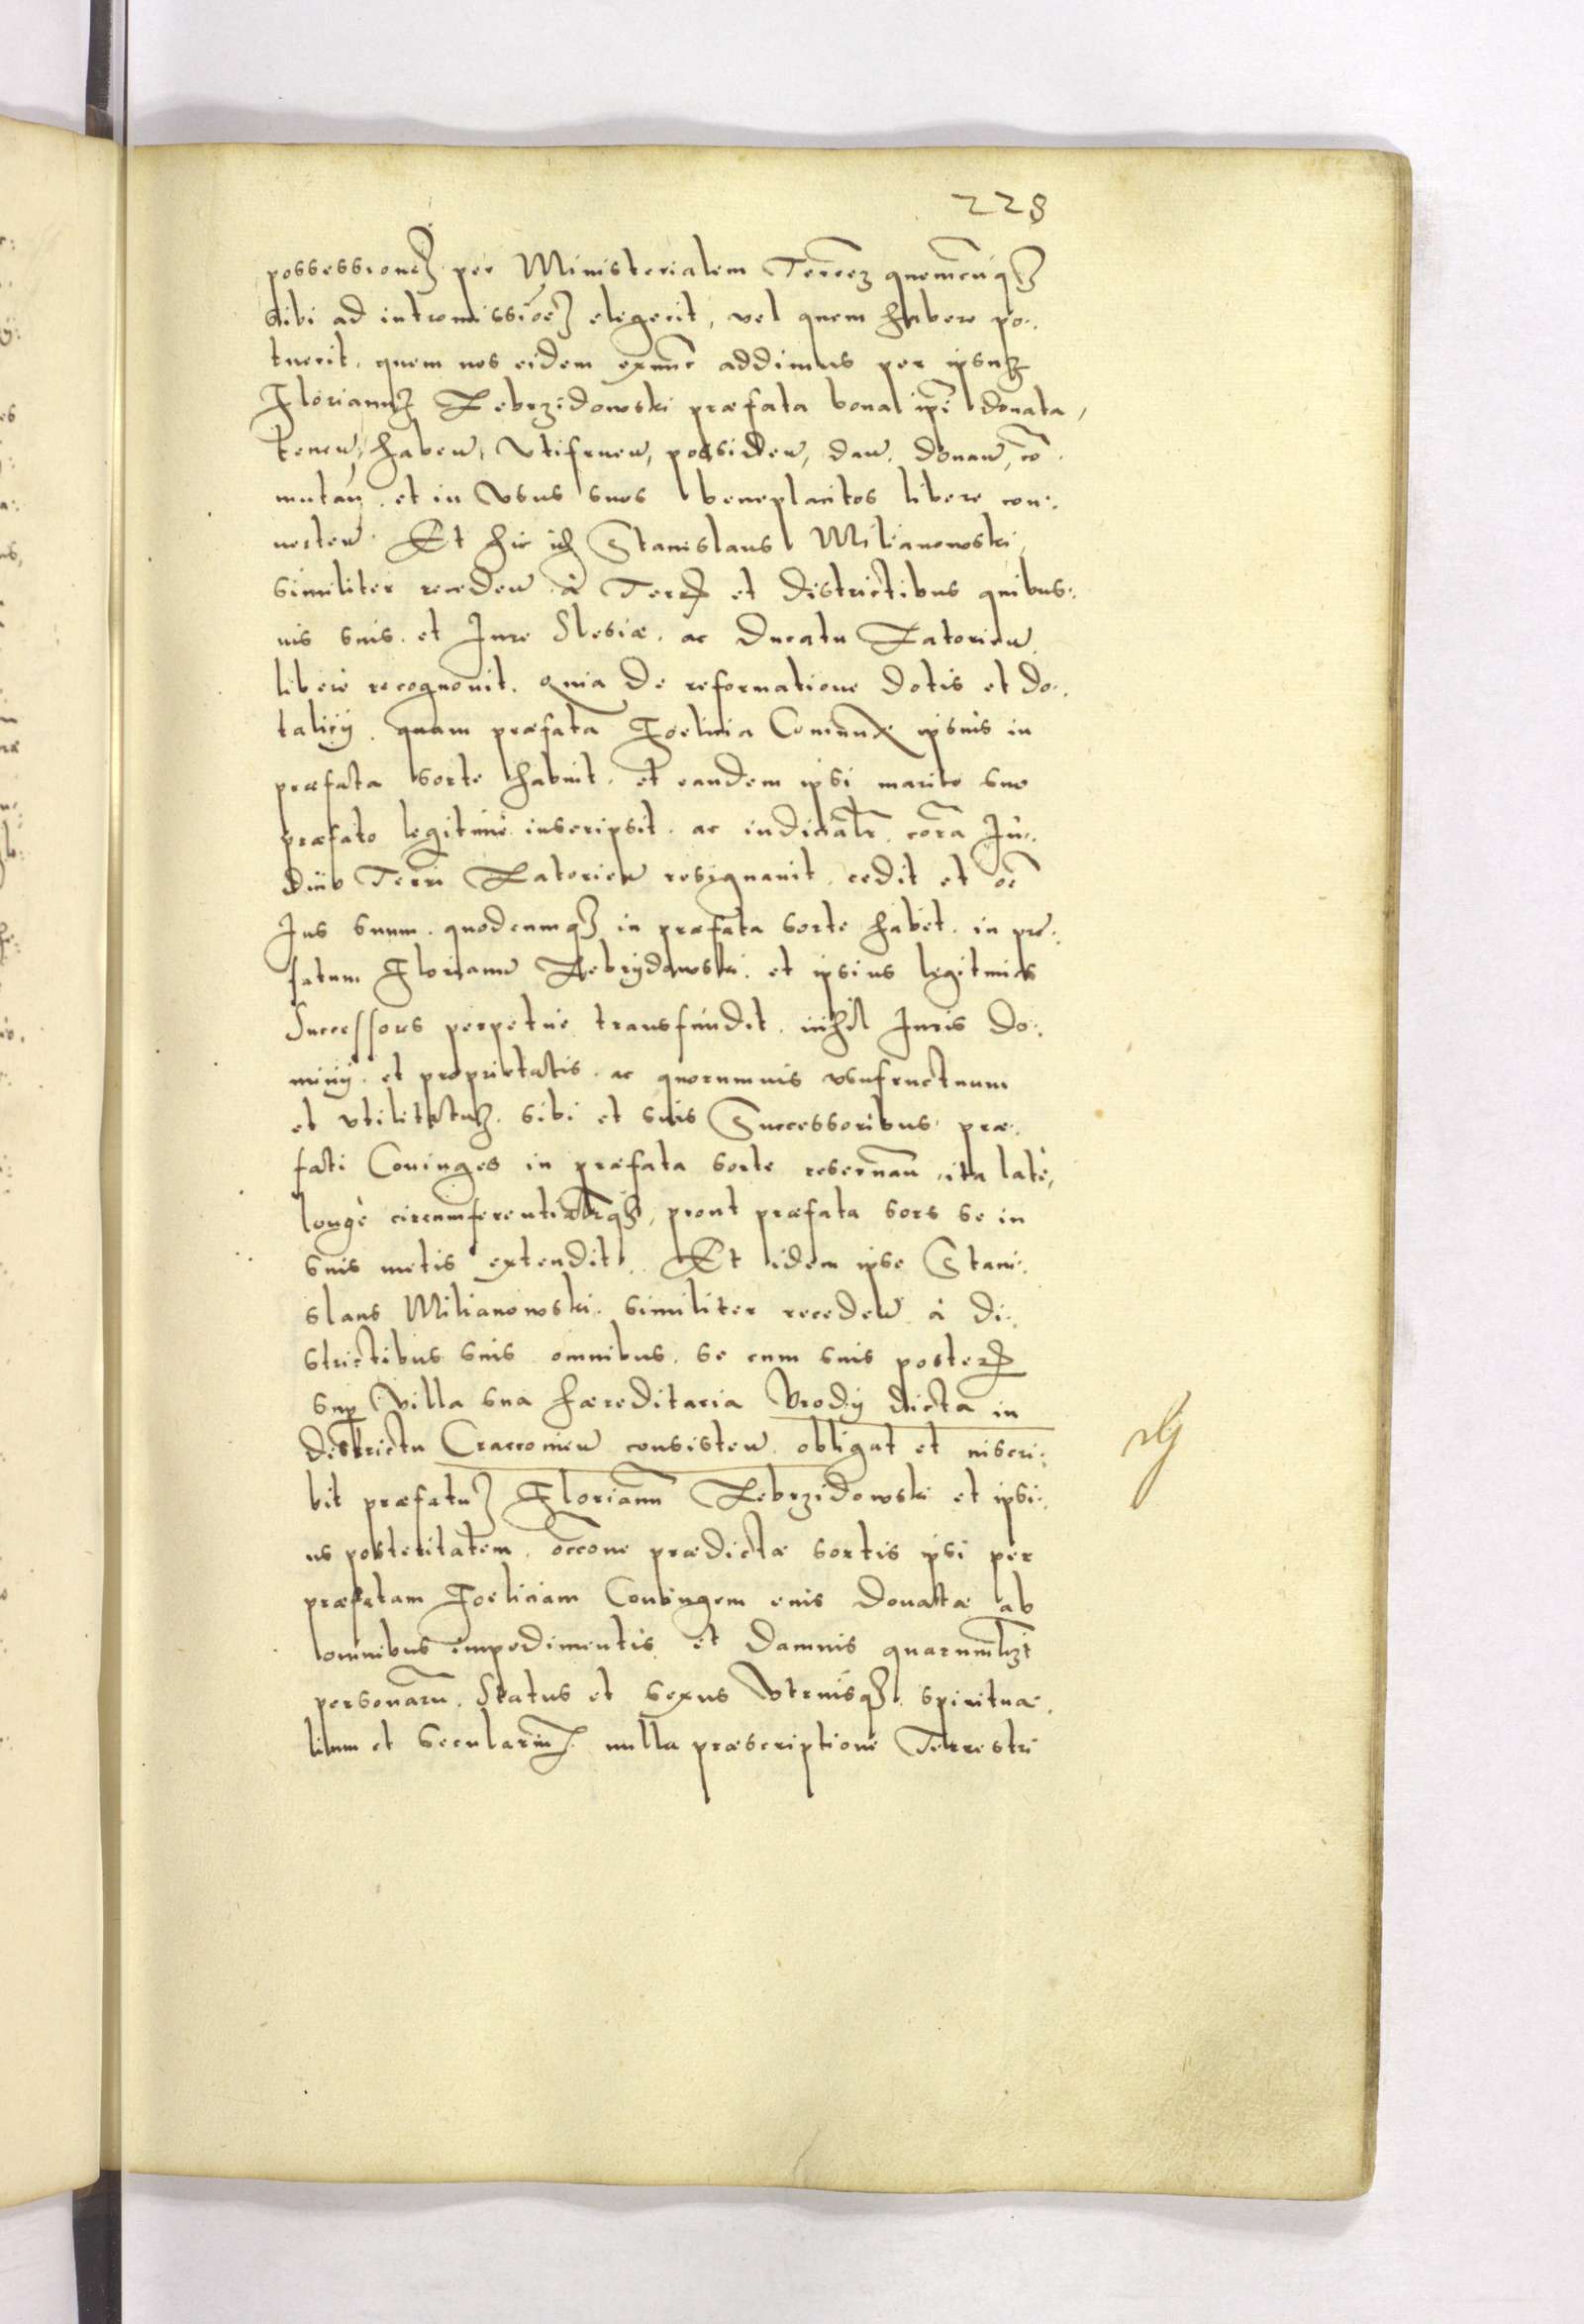 228
possessionē per Ministerialem Terrem quemcūqȝ
sibi ad intromissiōē elegerit, vel quem habere po:
tuerit. quem nos eidem exnunc addimus per ipsuȝ
Florianuȝ Zebrzidowski præfata bona ipī donata,
tenen, haben, Vtifruen, possiden, dan, donan, cō
mutan, et in Vsus suos beneplacitos libere con:
uerten. Et hic id Stanislaus Milianowski,
similiter receden à Terr et districtibus quibus:
uis suis. et Jure Slesiæ. ac Ducatu Zatorien
liberè recognouit. quia de reformatione dotis et do:
talicÿ. quam præfata Foelicia Coniunx ipsius in
præfata sorte habuit. et eandem ipsi marito suo
præfato legitimè inscripsit. ac iudicialr corā Ju:
diio Terri Zatorien resignauit. cedit et oē
Jus suum. quodcumqȝ in præfata sorte habet. in præ:
fatum Florianu Zebrzydowski. et ipsius legitmos
Successores perpetuè transfundit. nihil Juris do:
minÿ. et proprietatis. ac quorumuis vsufructuum
et vtilitatuȝ. sibi et suis Successoribus præ:
fati Coniuges in præfata sorte reseruan. ita latè,
longè circumferentialrqȝ, prout præfata sors se in
suis metis extendit. Et idem ipse Stani:
slaus Milianowski. similiter receden à di:
strictibus suis omnibus. se cum suis poster
sup Villa sua hæreditaria Brody dicta in
districtu Cracouien consisten. obligat et inscri:
bit præfatuȝ Florianū Zebrzidowski et ipsi:
us posteritatem. occone prædictæ sortis ipsi per
præfatam Foeliciam Coniugem eius donatæ ab
omnibus impedimentis et damnis quarumlȝt
personarū. Status et sexus Vtriusqȝ. spiritua:
lium et Seculariū. nulla præscriptione Terrestri